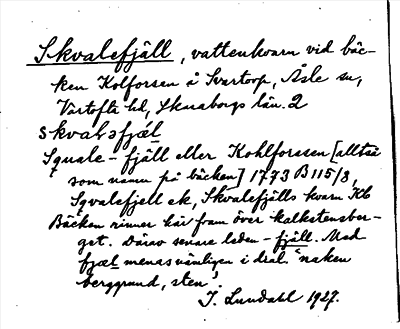 Skvalefjäll, vattenkvarn vid bäc-
ken Kolforsen å Svartorp, Åsle sn,
Vartofta hd, Skaraborgs län. 2
skvalᵊfjæl
Squale-fjäll eller Kohlforssen [alltså
som namn på bäcken] 1773 B 115/8,
Sqvalefjell ek, Skvalefjälls kvarn Kb
Bäcken rinner här fram över kalkstensber-
get. Därav senare leden -fjäll. Med
fjæl menas nämligen i dial. 'naken
berggrund, sten'
J. Lundahl 1927.